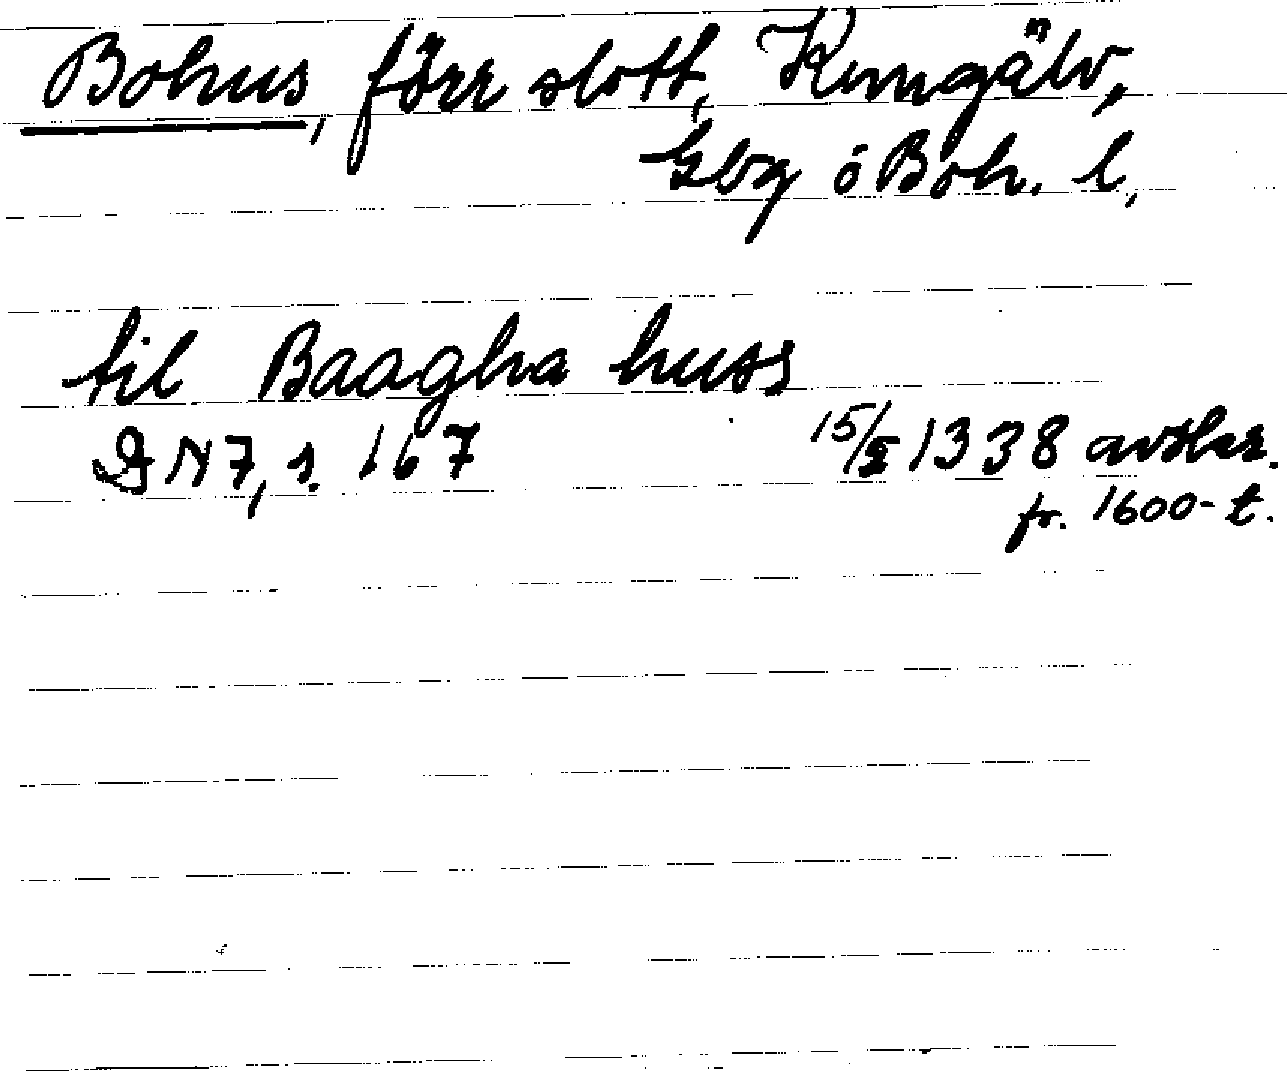 Bohus, förr slott, Kungälv,
Gbg o Boh. l,
til Baagha huss
DN 7, s. 167 15/X 1338 avskr.
fr. 1600-t.